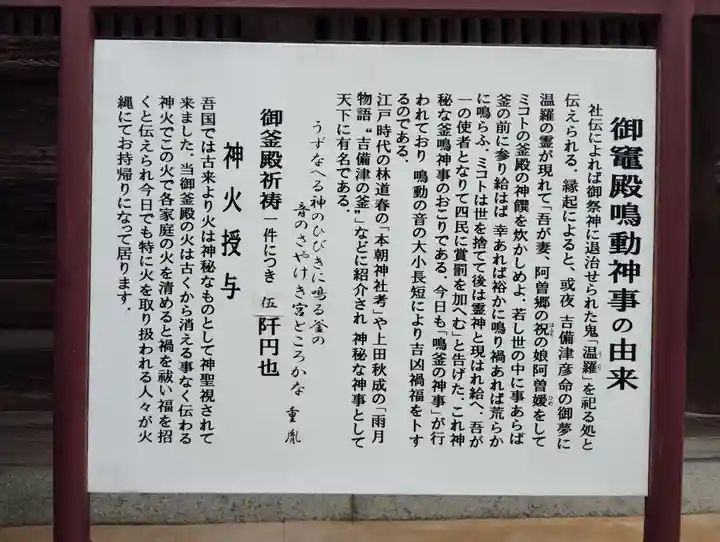 御竈殿鳴動神事の由来
社伝によれば御祭神に退治せられた鬼「温羅」を祀る処と
伝えられる．縁起によると、或夜 吉備津彦命の御夢に
温羅の霊が現れて「吾が妻、阿曽郷の祝の娘阿曽媛をして
ミコトの釜殿の神饌を炊かしめよ．若し世の中に事あらば
釜の前に参り給はば 幸あれば裕かに鳴り禍あれば荒らか
に鳴らふ．ミコトは世を捨てて後は霊神と現はれ給へ．吾が
一の使者となりて四民に賞罰を加へむ」と告げた．これ神
秘な釜鳴神事のおこりである．今日も「鳴釜の神事」が行
われており 鳴動の音の大小長短により吉凶禍福を卜す
るのである．
江戸時代の林道春の「本朝神社考」や上田秋成の「雨月
物語〝吉備津の釜〟」などに紹介され 神秘な神事として
天下に有名である．
うずなへる神のひびきに鳴る釜の
音のさやけき宮ところかな 重胤
御釜殿祈祷 一件につき 伍阡円也
神火授与
吾国では古来より火は神秘なものとして神聖視されて
来ました．当御釜殿の火は古くから消える事なく伝わる
神火でこの火で各家庭の火を清めると禍を祓い福を招
くと伝えられ今日でも特に火を取り扱われる人々が火
縄にてお持帰りになって居ります．